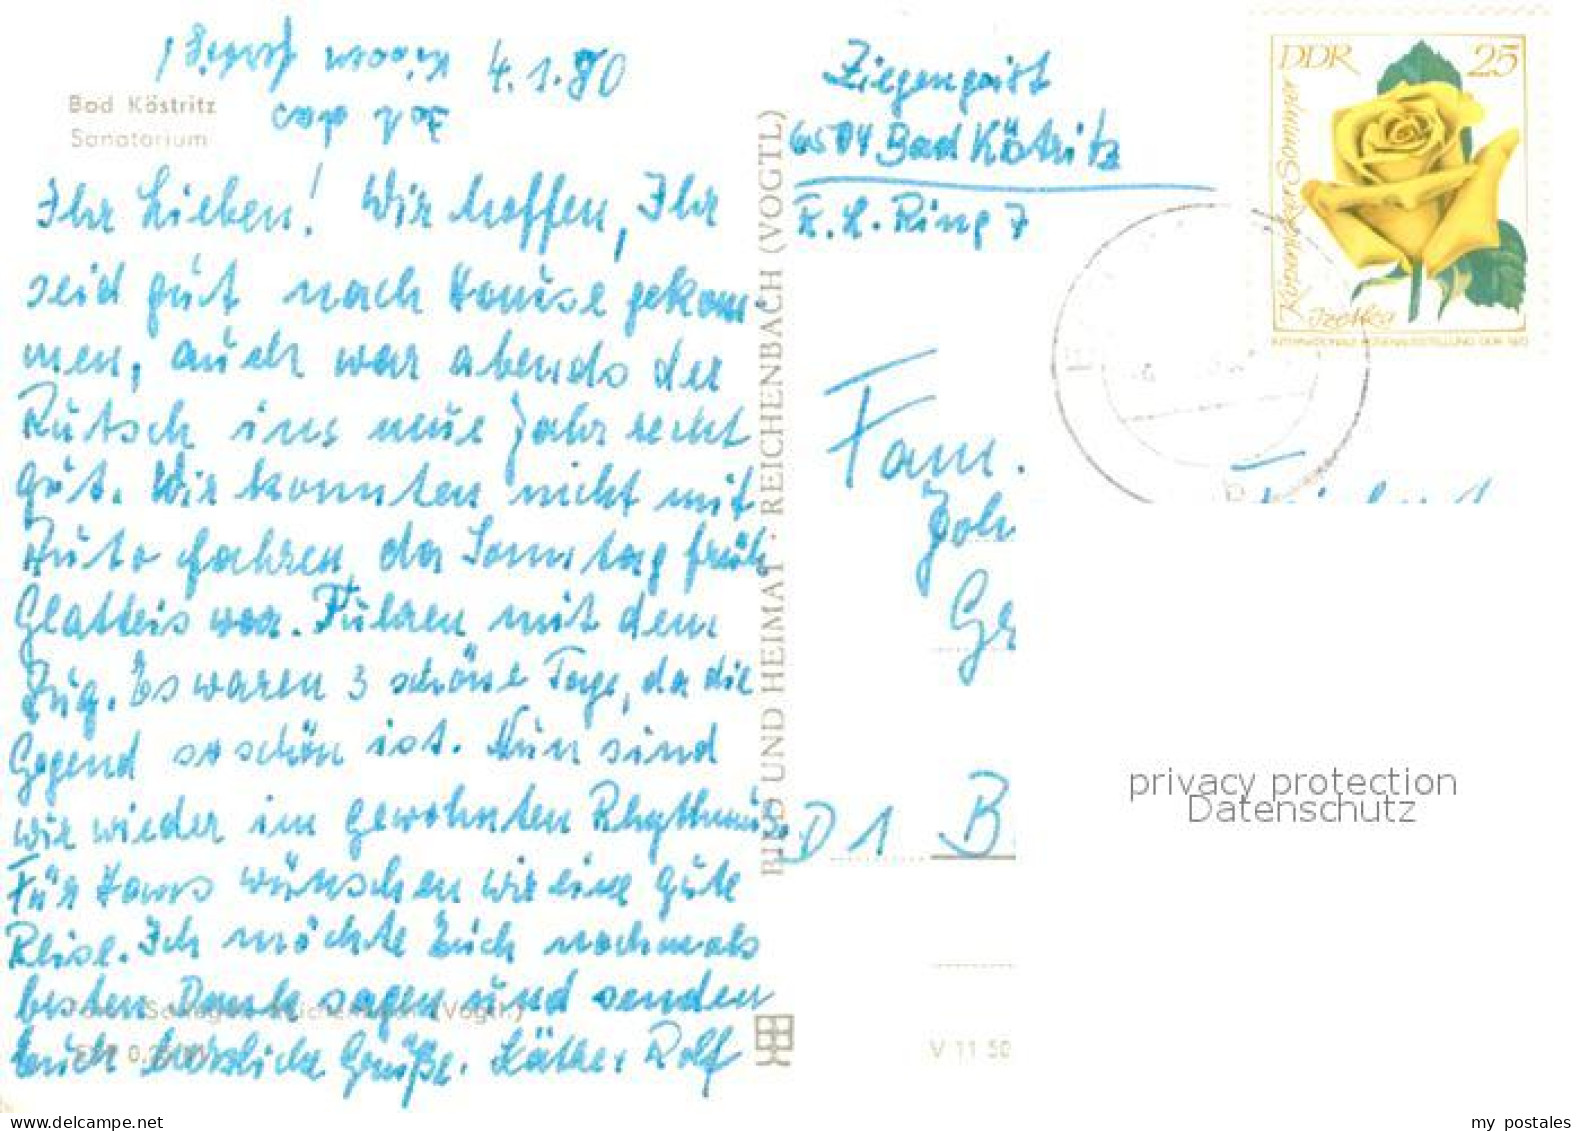 4.1.80
Bad Köstritz
Sanatorium
Ihr Lieben! Wir hoffen, Ihr
seid gut nach Hause gekom
men, auch war abends der
Rutsch ins neue Jahr recht
gut. Wir konnten nicht mit
Auto fahren, da Sonntag früh
Glatteis war. Fuhren mit dem
Zug. Es waren 3 schöne Tage, da die
Gegend so schön ist. Nun sind
wir wieder im gewohnten Rhythmus.
Für Hans wünschen wir eine gute
Reise. Ich möchte Euch nochmals
besten Dank sagen und senden
Euch herzliche Grüße. Käthe + Rolf
BILD UND HEIMAT · REICHENBACH (VOGTL)
Ziegengeist
6504 Bad Köstritz
K. L. Ring 7
DDR 25
Köpenicker Sommer
Izetka
INTERNATIONALE ROSENAUSSTELLUNG DDR 1972
Fam.
Joh
Ge
D 1 B
V 11 50
privacy protection
Datenschutz
my postales
www.delcampe.net